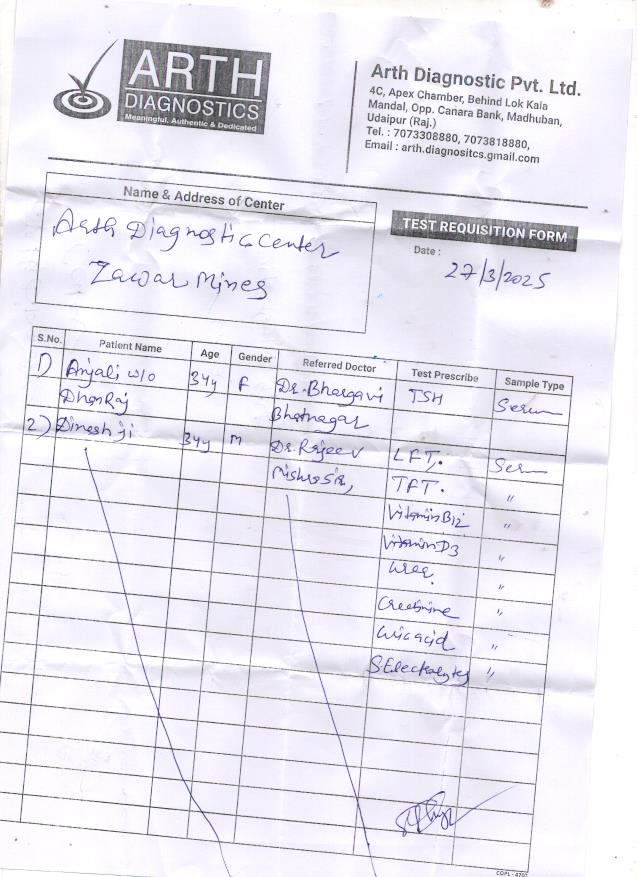 ARTH
DIAGNOSTICS
Meaningful, Authentic & Dedicated
Arth Diagnostic Pvt. Ltd.
4C, Apex Chamber, Behind Lok Kala
Mandal, Opp. Canara Bank, Madhuban,
Udaipur (Raj.)
Tel. : 7073308880, 7073818880,
Email : arth.diagnositcs.gmail.com
Name & Address of Center
Arth Diagnostic Center
Zawar Mines
TEST REQUISITION FORM
Date :
27/3/2025
S.No. Patient Name Age Gender Referred Doctor Test Prescribe Sample Type
1) Anjali w/o 34y F Dr. Bhargavi TSH Serum
DhanRaj Bhatnagar
2) Dinesh ji 34y M Dr. Rajeev LFT, Serum
Mishra Sir, TFT. "
Vitamin B12 "
Vitamin D3 "
Urea. "
Creatinine "
Uric acid "
S Electrolytes "
COPL - 4707